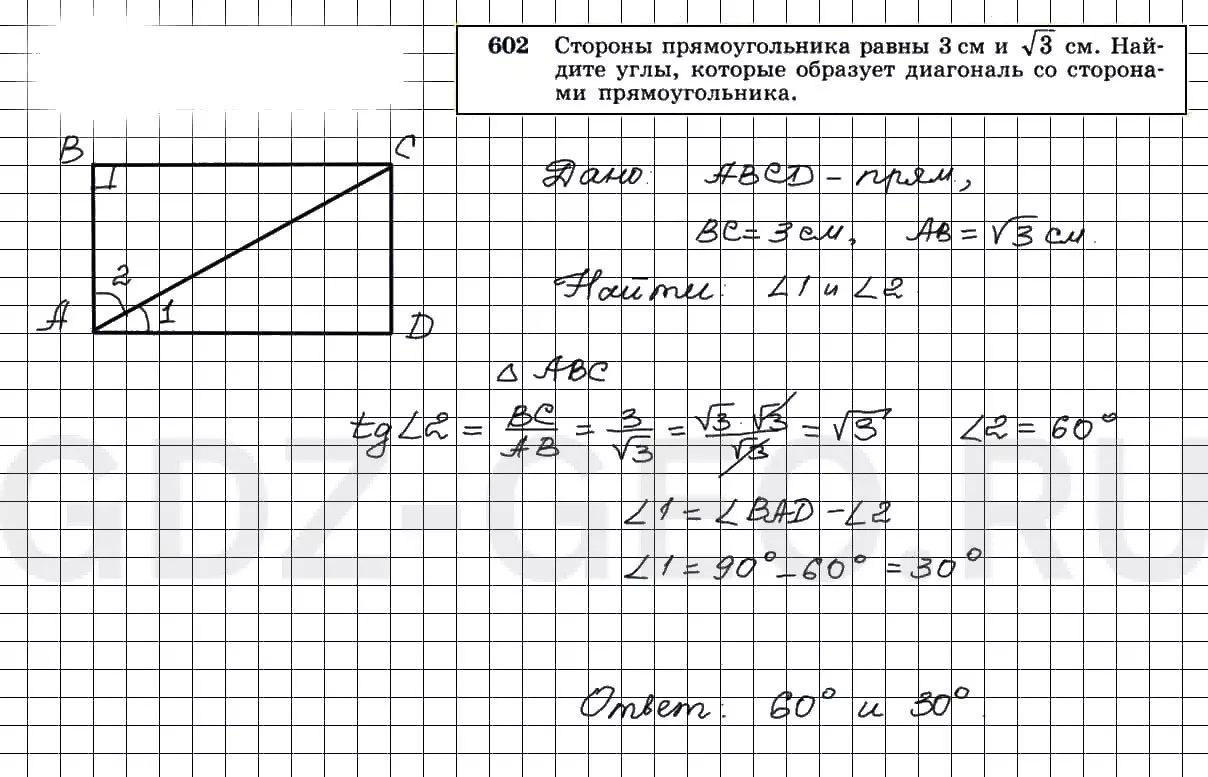 602 Стороны прямоугольника равны 3 см и √3 см. Най-
дите углы, которые образует диагональ со сторона-
ми прямоугольника.
B C
2
1
A D
Дано: ABCD - прям.,
BC = 3 см, AB = √3 см.
Найти: ∠1 и ∠2
△ ABC
tg∠2 = BC/AB = 3/√3 = √3·√3/√3 = √3 ∠2 = 60°
∠1 = ∠BAD - ∠2
∠1 = 90° - 60° = 30°
Ответ: 60° и 30°.
GDZ-GEO.RU